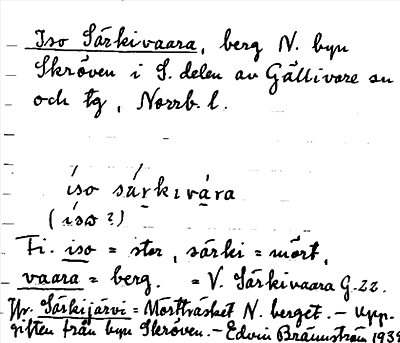 Iso Särkivaara, berg N. byn
Skröven i S. delen av Gällivare sn
och tg, Norrb. l.
íso särkıvȧra
(íso?)
Fi. iso = stor, särki = mört,
vaara = berg. = V. Särkivaara G.22.
Jfr. Särkijärvi = Mörtträsket N. berget. – Upp-
giften från byn Skröven. – Edvin Brännström 1939